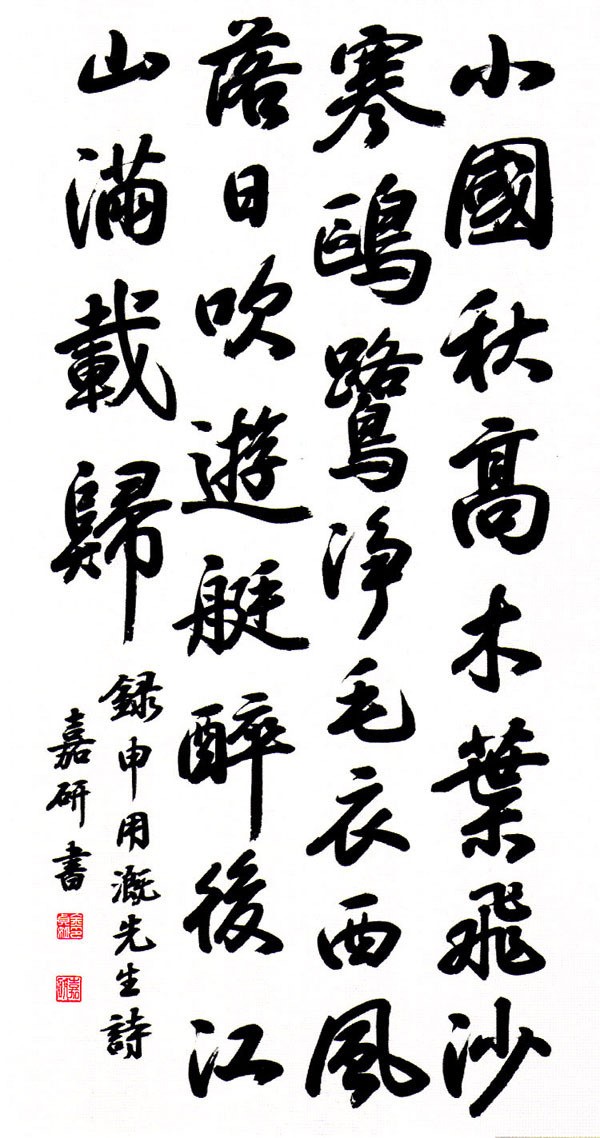 水國秋高木葉飛沙
寒鷗鷺淨毛衣西風
落日吹遊艇醉後江
山滿載歸
録申用漑先生詩
嘉研書